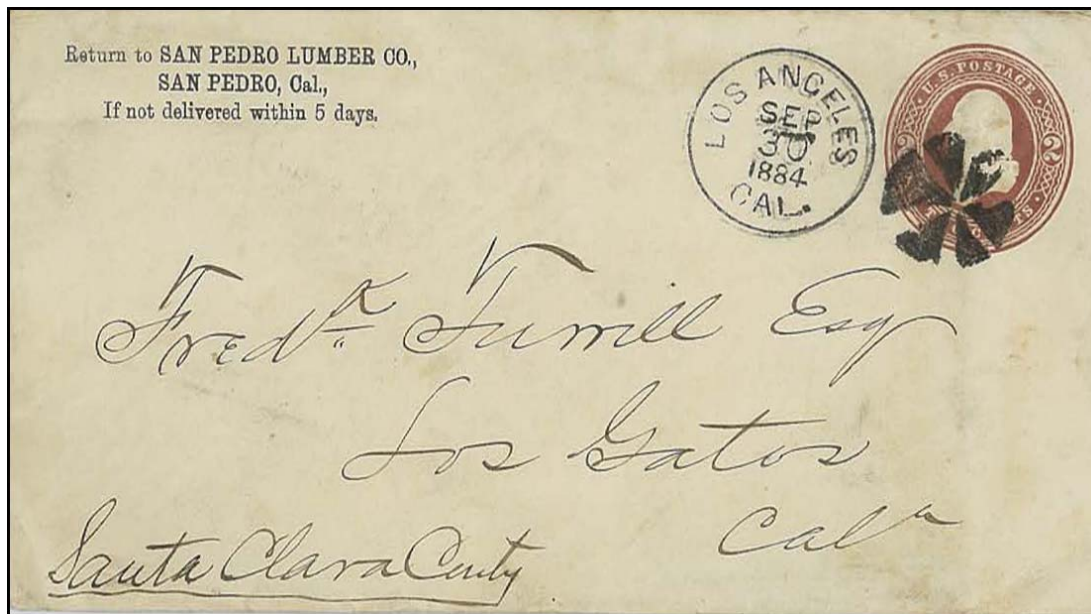 Return to SAN PEDRO LUMBER CO.,
SAN PEDRO, Cal.,
If not delivered within 5 days.
LOS ANGELES
SEP
30
1884
CAL.
U.S. POSTAGE
2 2
Fredk Turrill Esq
Los Gatos
Cala
Santa Clara Conty